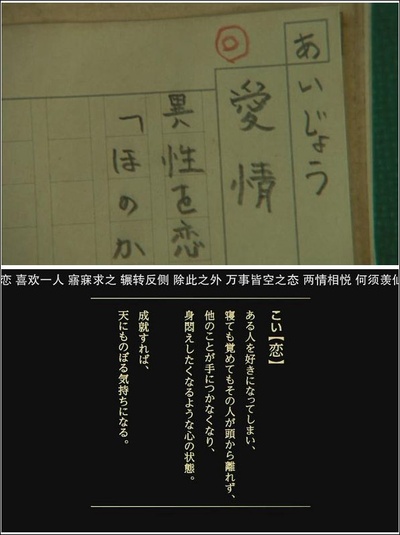 あいじょう
愛情
異性を恋
「ほのか
恋 喜欢一人 寤寐求之 辗转反侧 除此之外 万事皆空之态 两情相悦 何须羡仙
こい【恋】
ある人を好きになってしまい、
寝ても覚めてもその人が頭から離れず、
他のことが手につかなくなり、
身悶えしたくなるような心の状態。
成就すれば、
天にものぼる気持ちになる。